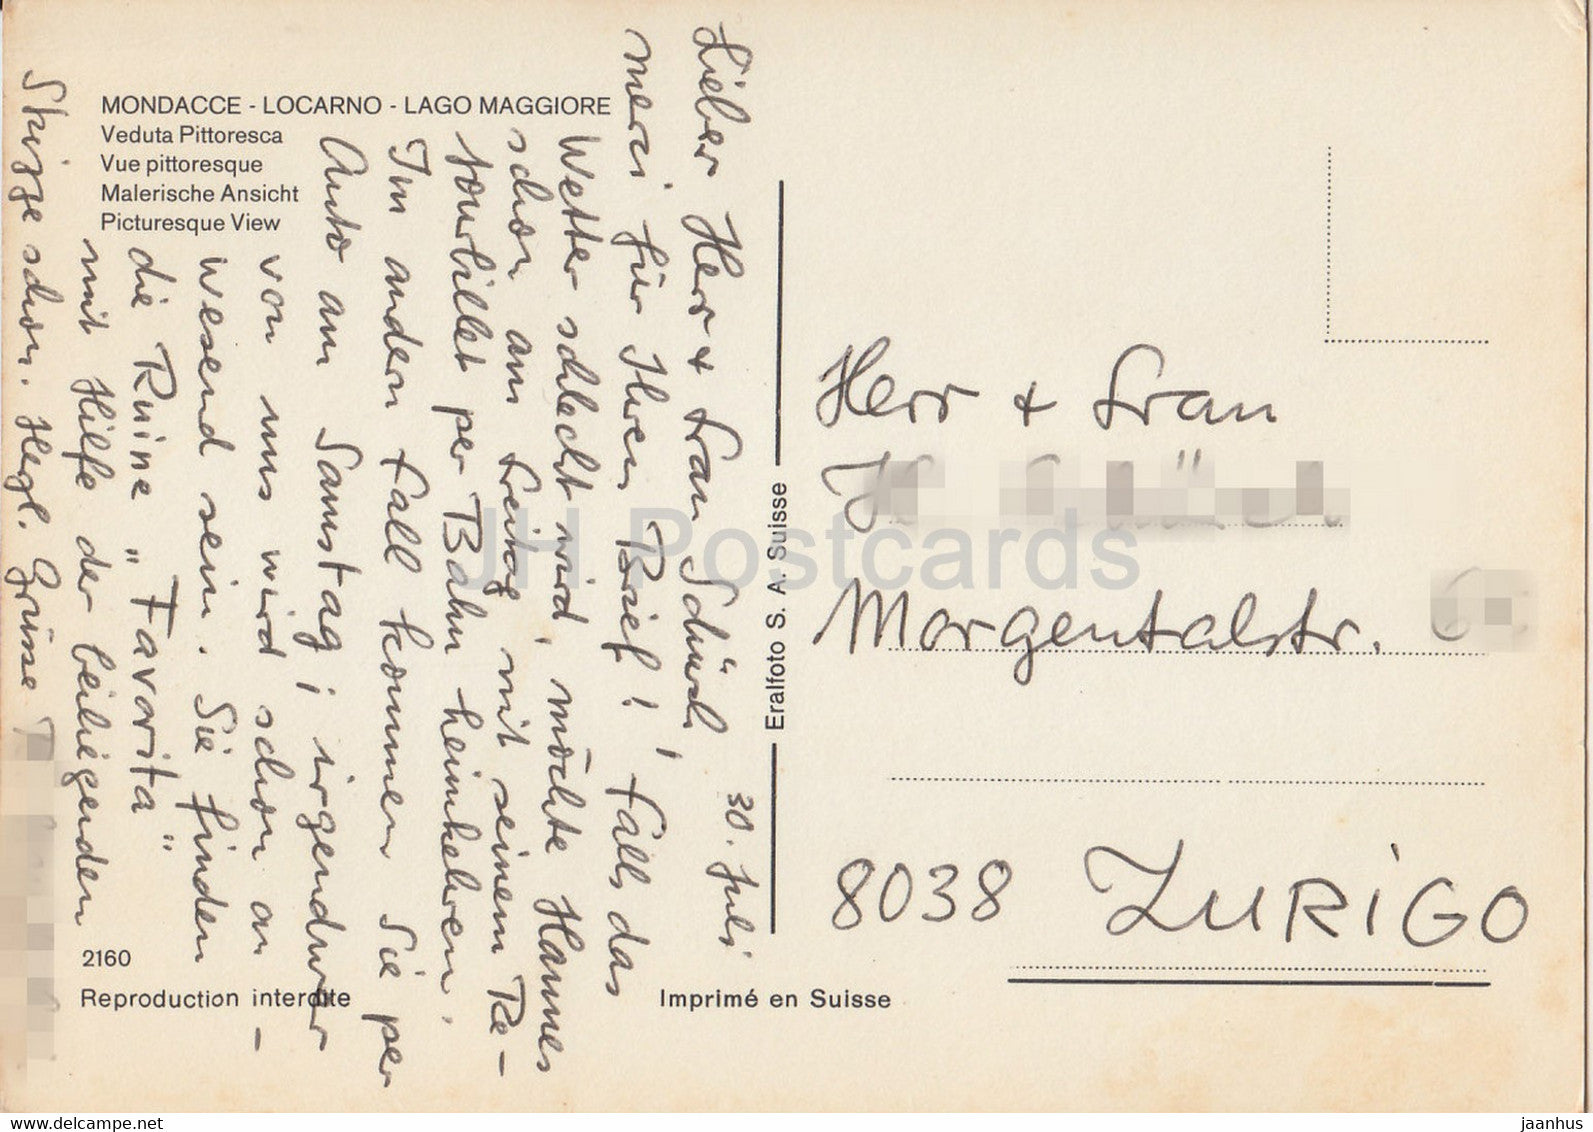 MONDACCE - LOCARNO - LAGO MAGGIORE
Veduta Pittoresca
Vue pittoresque
Malerische Ansicht
Picturesque View
30. Juli
Lieber Herr + Frau Schürch!
merci für Ihren Brief! Falls das
Wetter schlecht wird, möchte Hannes
schon am Freitag mit seinem Re-
tourbillet per Bahn heimkehren.
Im andern Fall kommen Sie per
Auto am Samstag; irgendwer
von uns wird schon an-
wesend sein. Sie finden
die Ruine „Favorita"
mit Hilfe der beiliegenden
Skizze schon. Hegl. Grüsse
Eralfoto S. A. Suisse
Herr + Frau
Morgentalstr.
8038 ZURIGO
2160
Reproduction interdite
Imprimé en Suisse
JH Postcards
delcampe.net
jaanhus